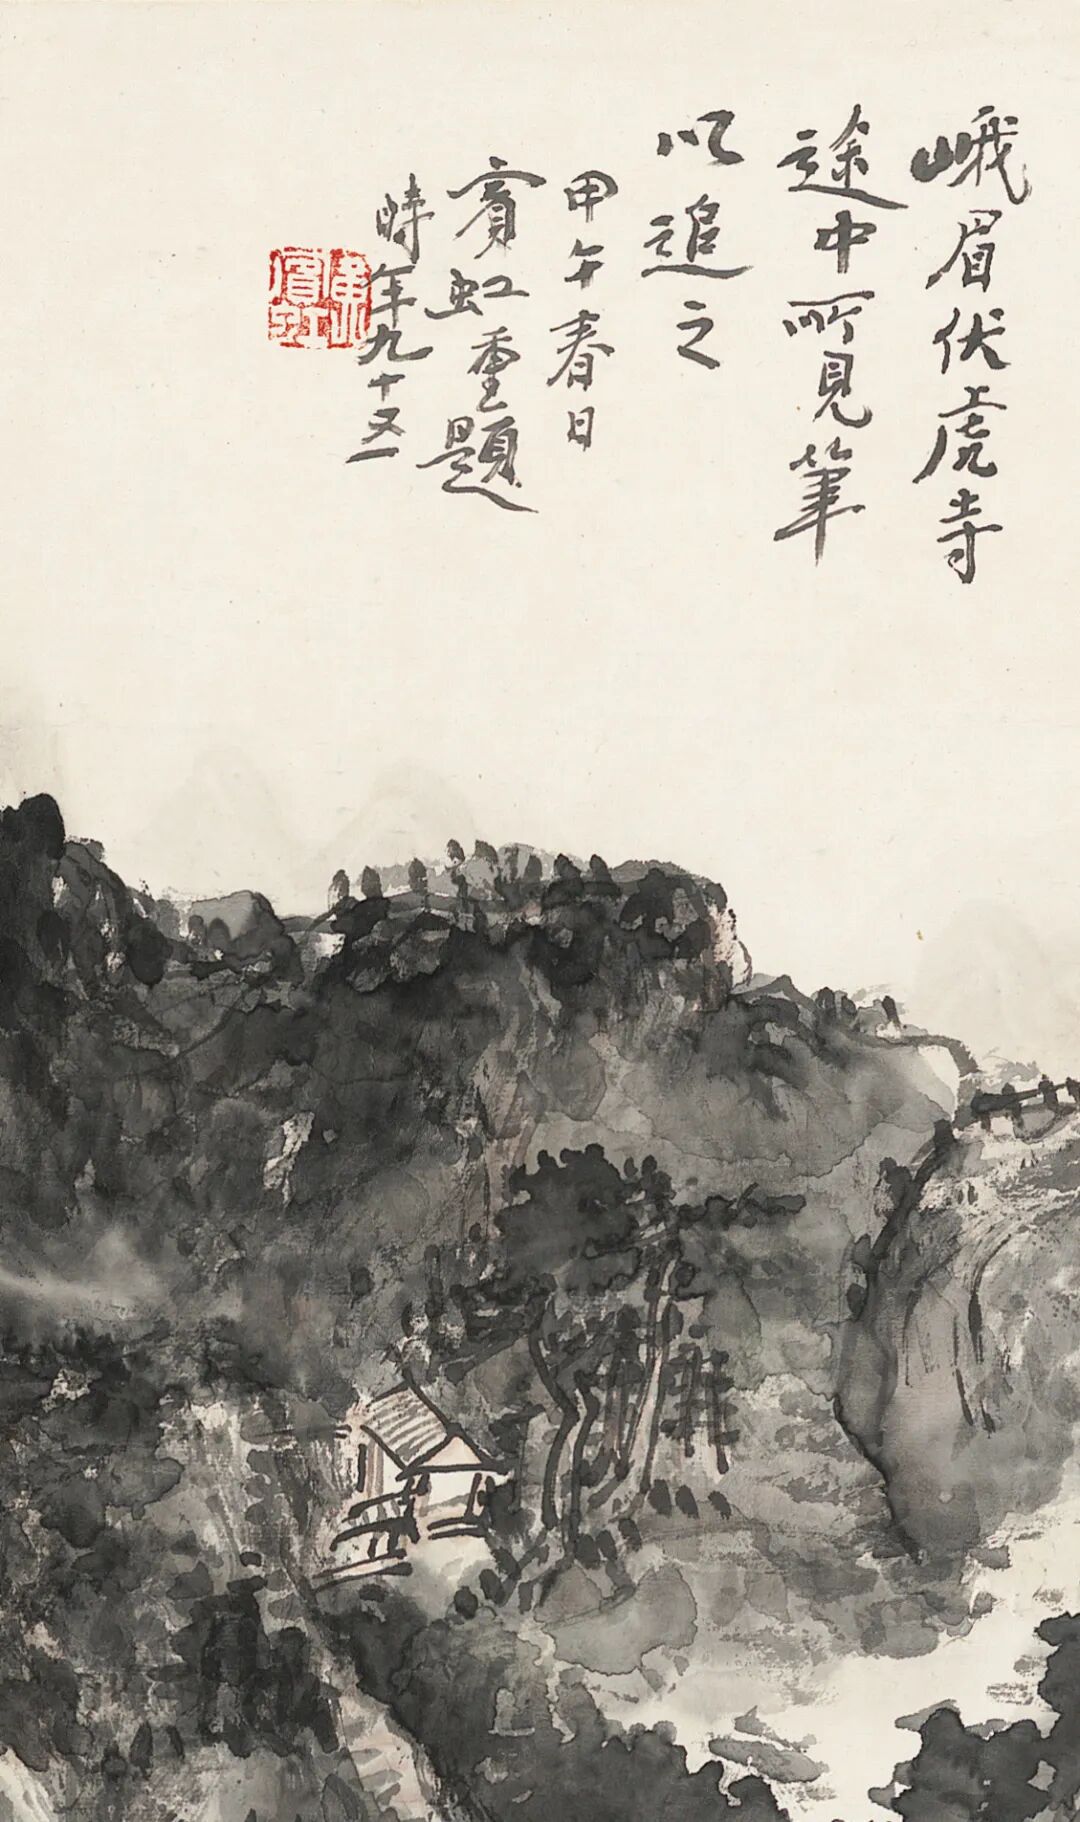 峨眉伏虎寺
途中所見筆
以追之
甲午春日
賓虹重題
時年九十又一
黃賓虹